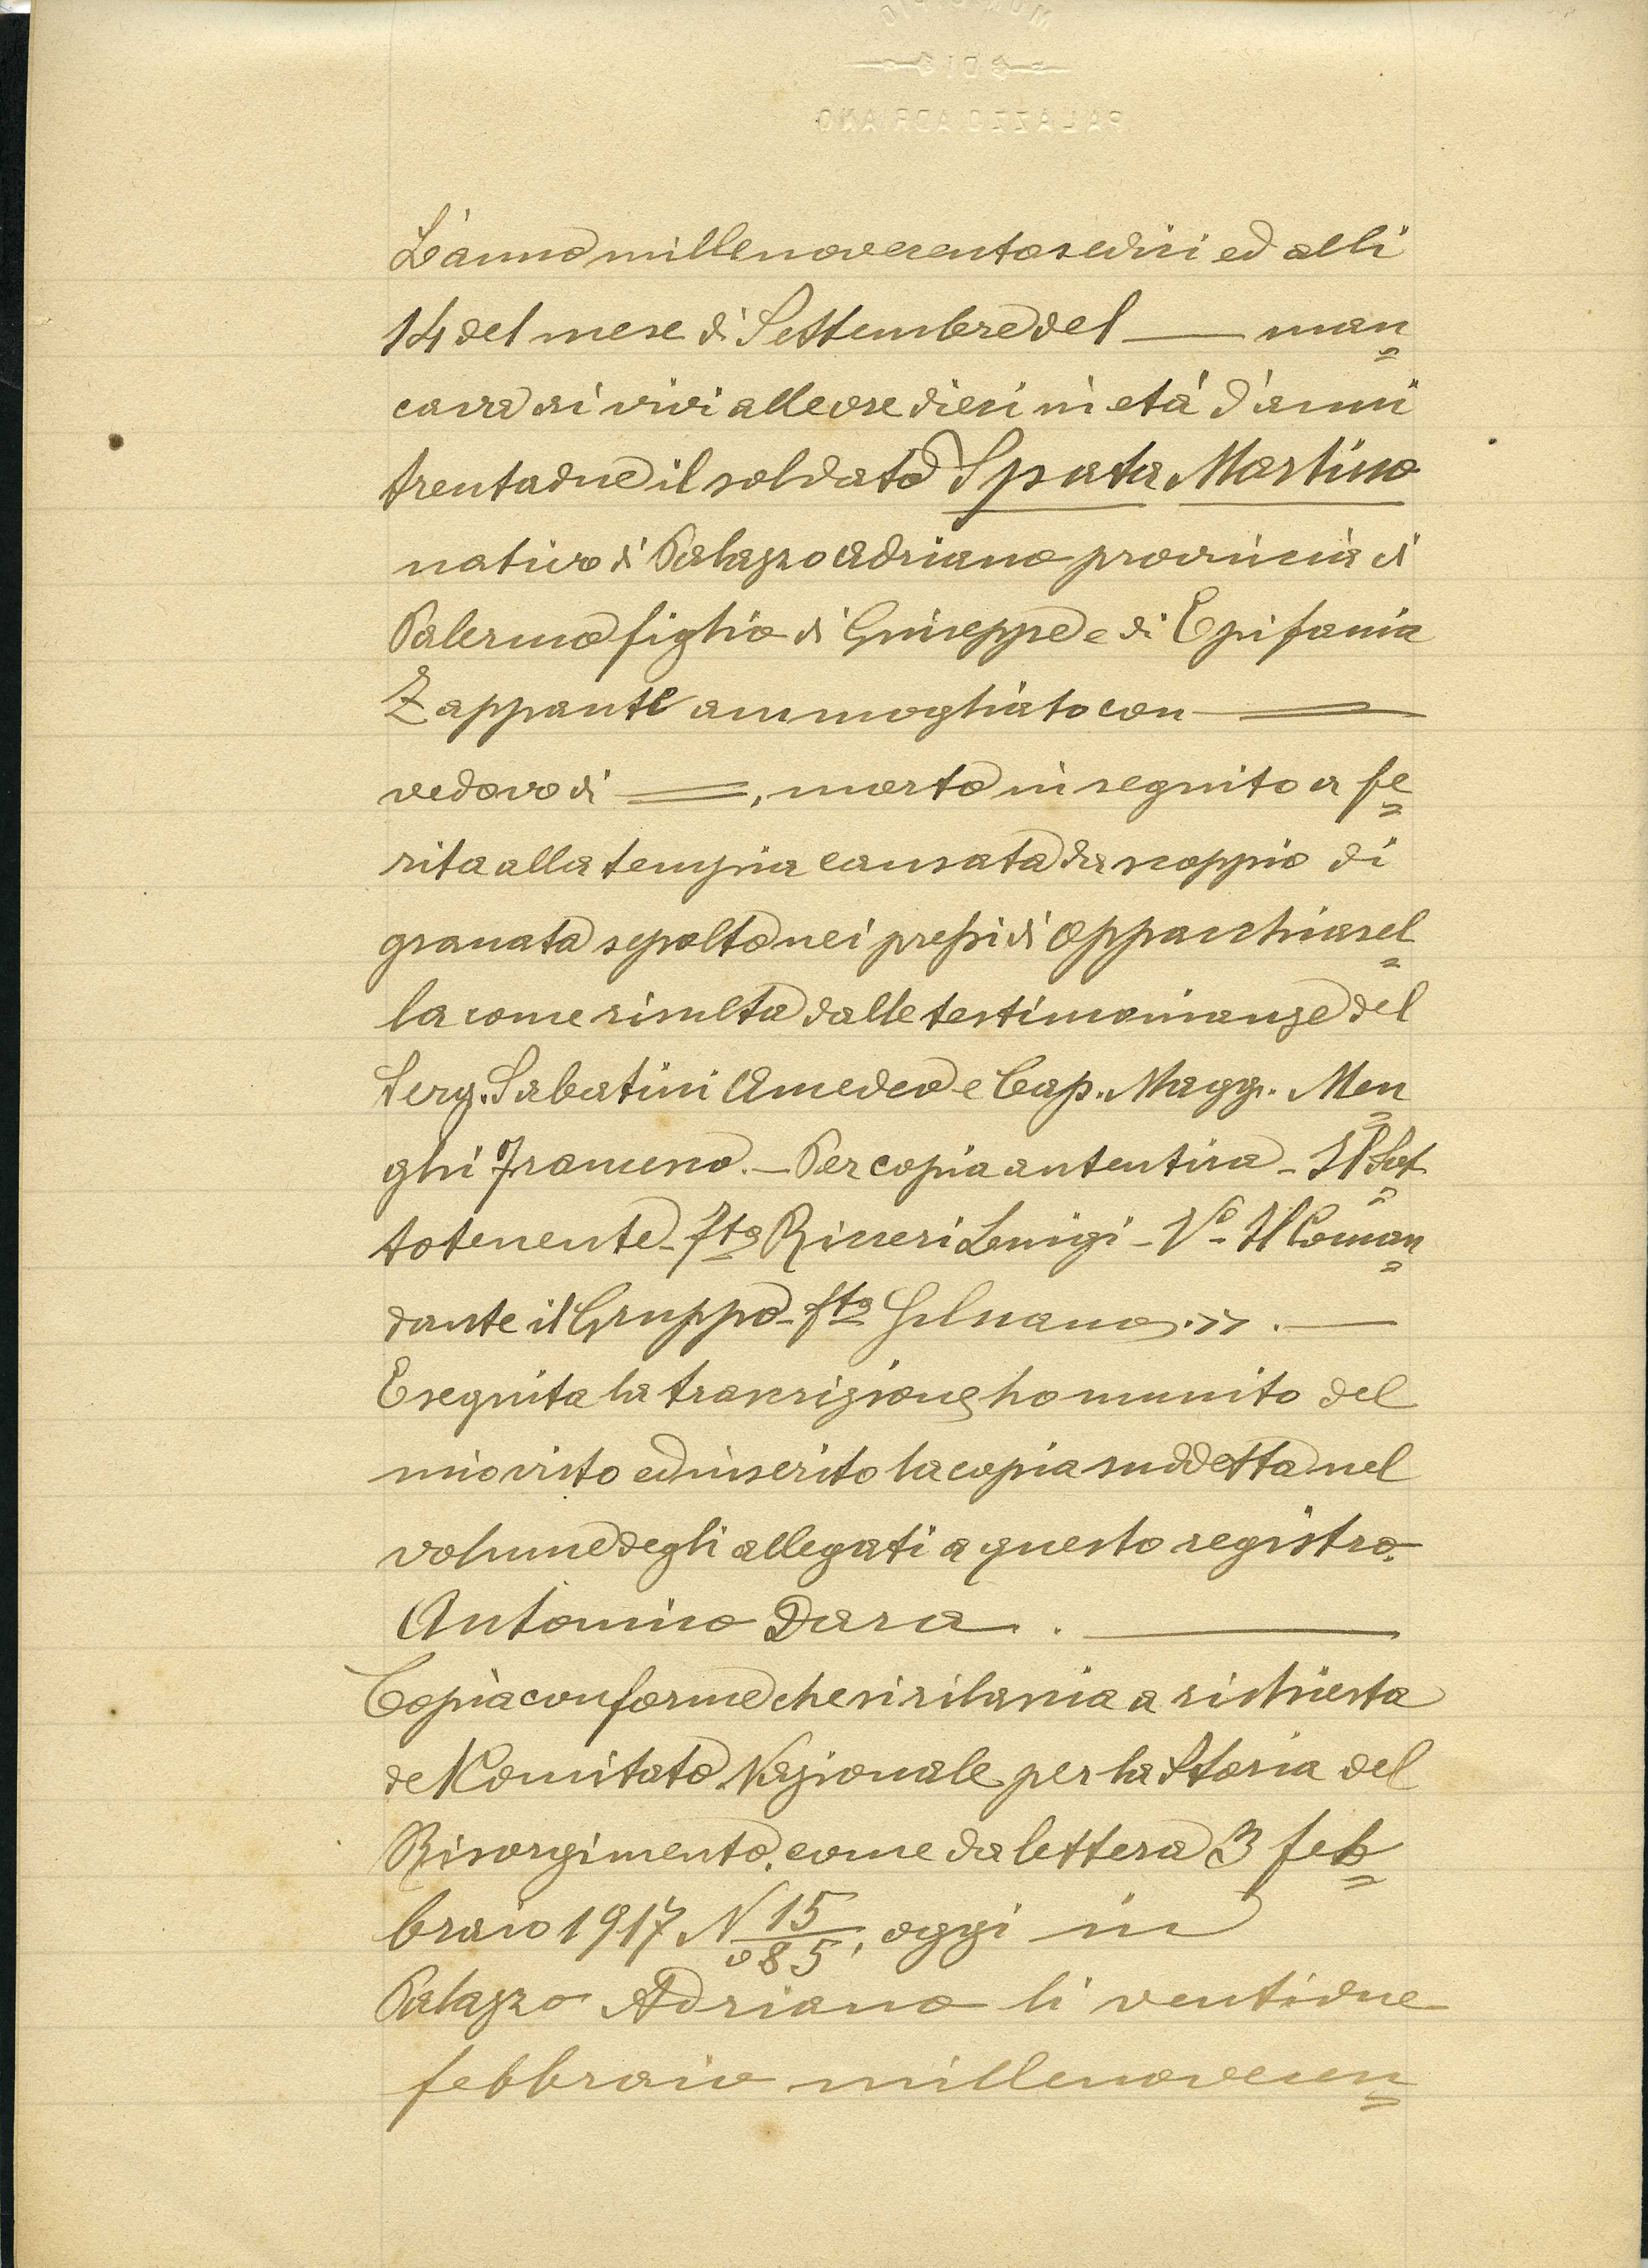 MUNICIPIO
DI
PALAZZO ADRIANO
L'anno millenovecentosedici ed alli
14 del mese di Settembre del — man
cava ai vivi alle ore dieci in età d'anni
trentadue il soldato Spata Martino
nativo di Palazzo Adriano provincia di
Palermo figlio di Giuseppe e di Epifania
Zappante ammogliato con —
vedovo di —, morto in seguito a fe
rita alla tempia causata da scoppio di
granata sepolto nei pressi di Oppacchiasel
la come risulta dalle testimonianze del
Serg. Sabatini Amedeo e Cap. Magg. Men
ghi Francesco. — Per copia autentica - Il Sot
totenente - fto Ricceri Luigi - Vo - Il Coman
dante il Gruppo - fto ». —
Eseguita la trascrizione ho munito del
mio visto ed inserito la copia suddetta nel
volume degli allegati a questo registro.
Antonino Dara. . —
Copia conforme che si rilascia a richiesta
del Comitato Nazionale per la Storia del
Risorgimento, come da lettera 3 feb
braio 1917 N 15/085, oggi in
Palazzo Adriano li ventidue
febbraio millenovecen